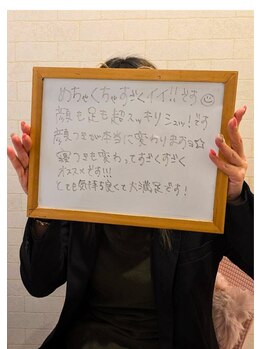 めちゃくちゃすごくイイ!!です☺
顔も足も超スッキリシュッ!です
顔つきが本当に変わりますヨ☆
寝つきも変わってすごくすごく
オススメです!!!
とても気持ち良くて大満足です!